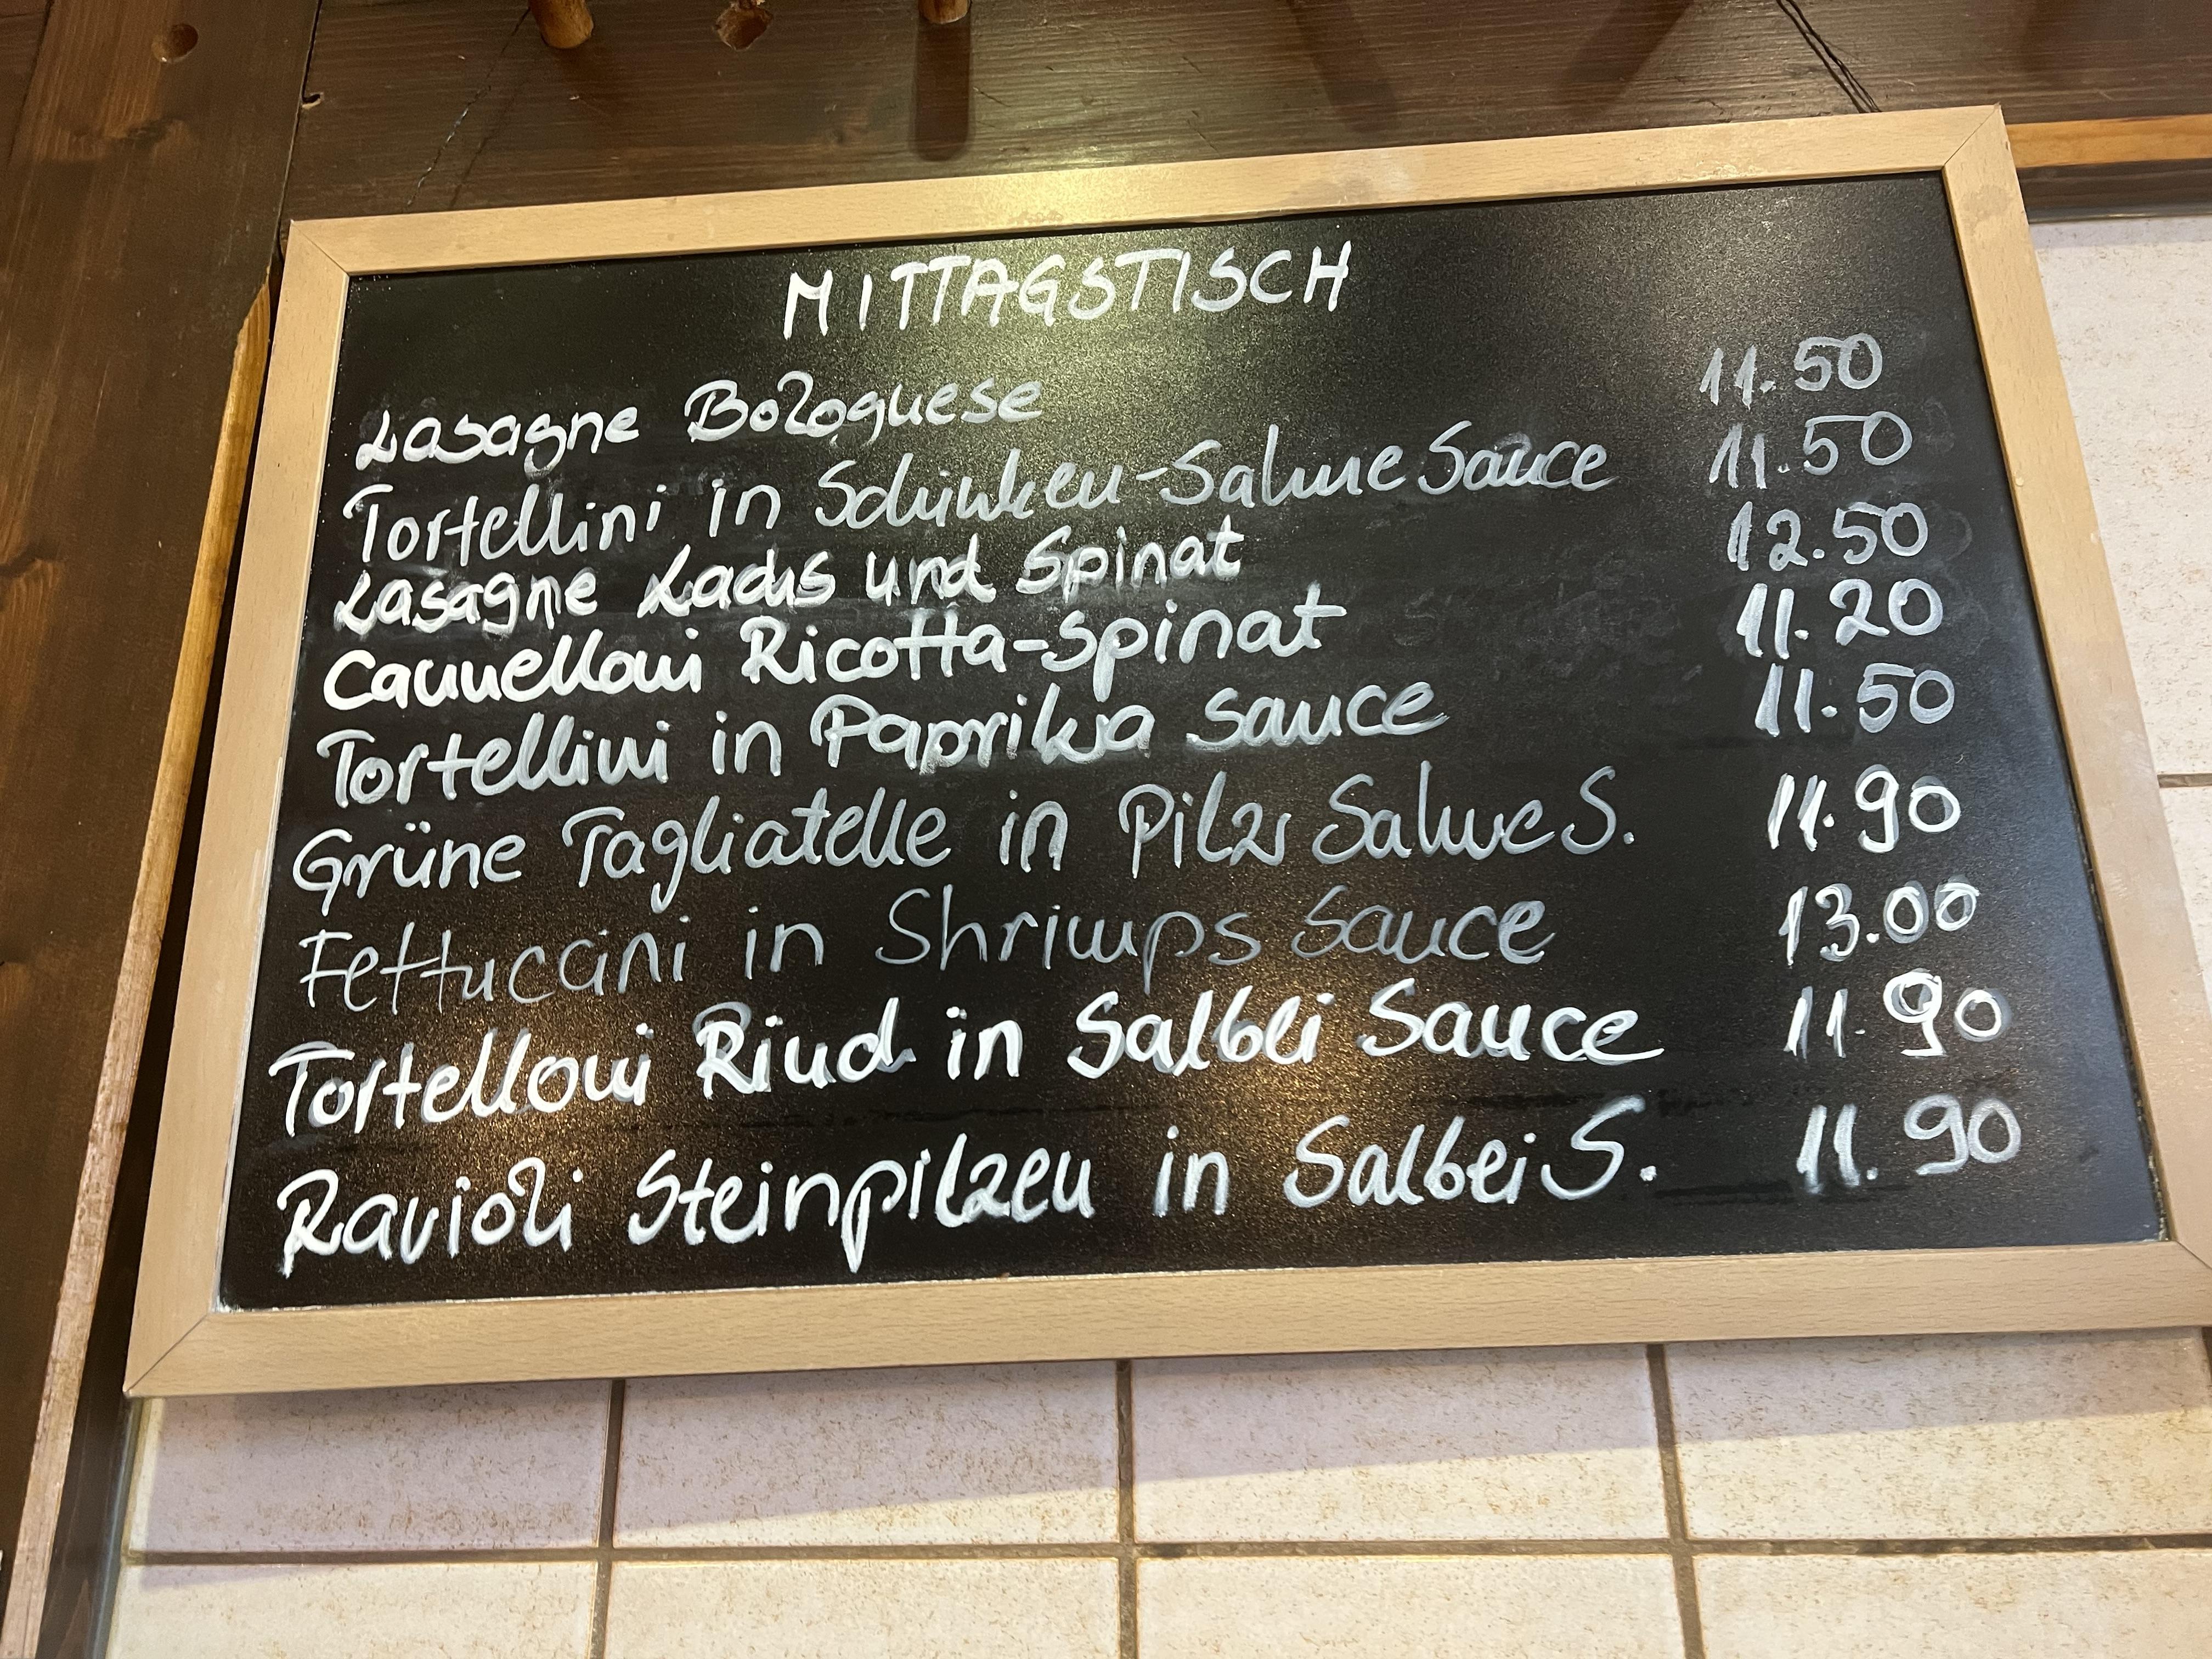 MITTAGSTISCH
Lasagne Bolognese 11.50
Tortellini in Schinken-Sahne Sauce 11.50
Lasagne Lachs und Spinat 12.50
Cannelloni Ricotta-Spinat 11.20
Tortellini in Paprika Sauce 11.50
Grüne Tagliatelle in Pilzr Sahne S. 11.90
Fettuccini in Shrimps Sauce 13.00
Tortelloni Rind in Salbei Sauce 11.90
Ravioli Steinpilzen in Salbei S. 11.90